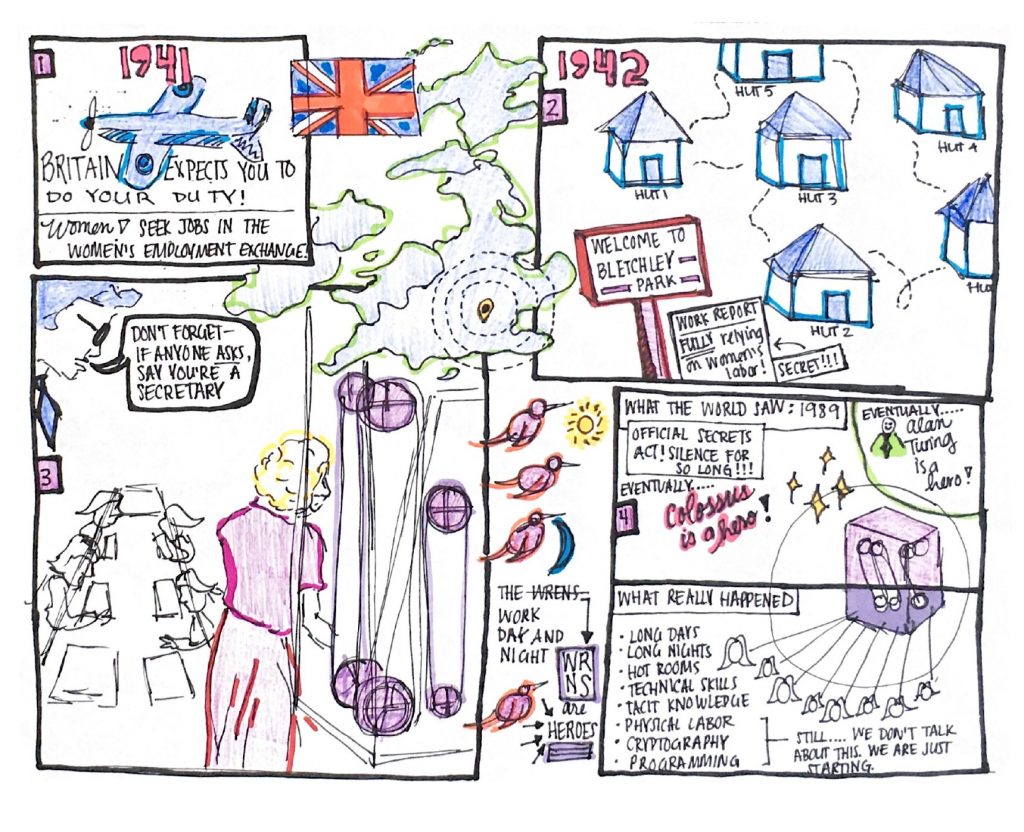 1
1941
BRITAIN EXPECTS YOU TO
DO YOUR DUTY!
Women SEEK JOBS IN THE
WOMEN'S EMPLOYMENT EXCHANGE!
1942
2
HUT 5
HUT 4
HUT 1
HUT 3
HUT 2
WELCOME TO
BLETCHLEY
PARK
WORK REPORT
FULLY relying
on women's
labor!
SECRET!!!!
3
DON'T FORGET—
IF ANYONE ASKS,
SAY YOU'RE A
SECRETARY
THE WRENS
WORK
DAY AND
NIGHT
WR
NS
are
HEROES
4
WHAT THE WORLD SAW: 1989
OFFICIAL SECRETS
ACT! SILENCE FOR
SO LONG!!!
EVENTUALLY.....
Colossus
is a hero!
EVENTUALLY.....
Alan
Turing
is a
hero!
WHAT REALLY HAPPENED
• LONG DAYS
• LONG NIGHTS
• HOT ROOMS
• TECHNICAL SKILLS
• TACIT KNOWLEDGE
• PHYSICAL LABOR
• CRYPTOGRAPHY
• PROGRAMMING
STILL.... WE DON'T TALK
ABOUT THIS. WE ARE JUST
STARTING.